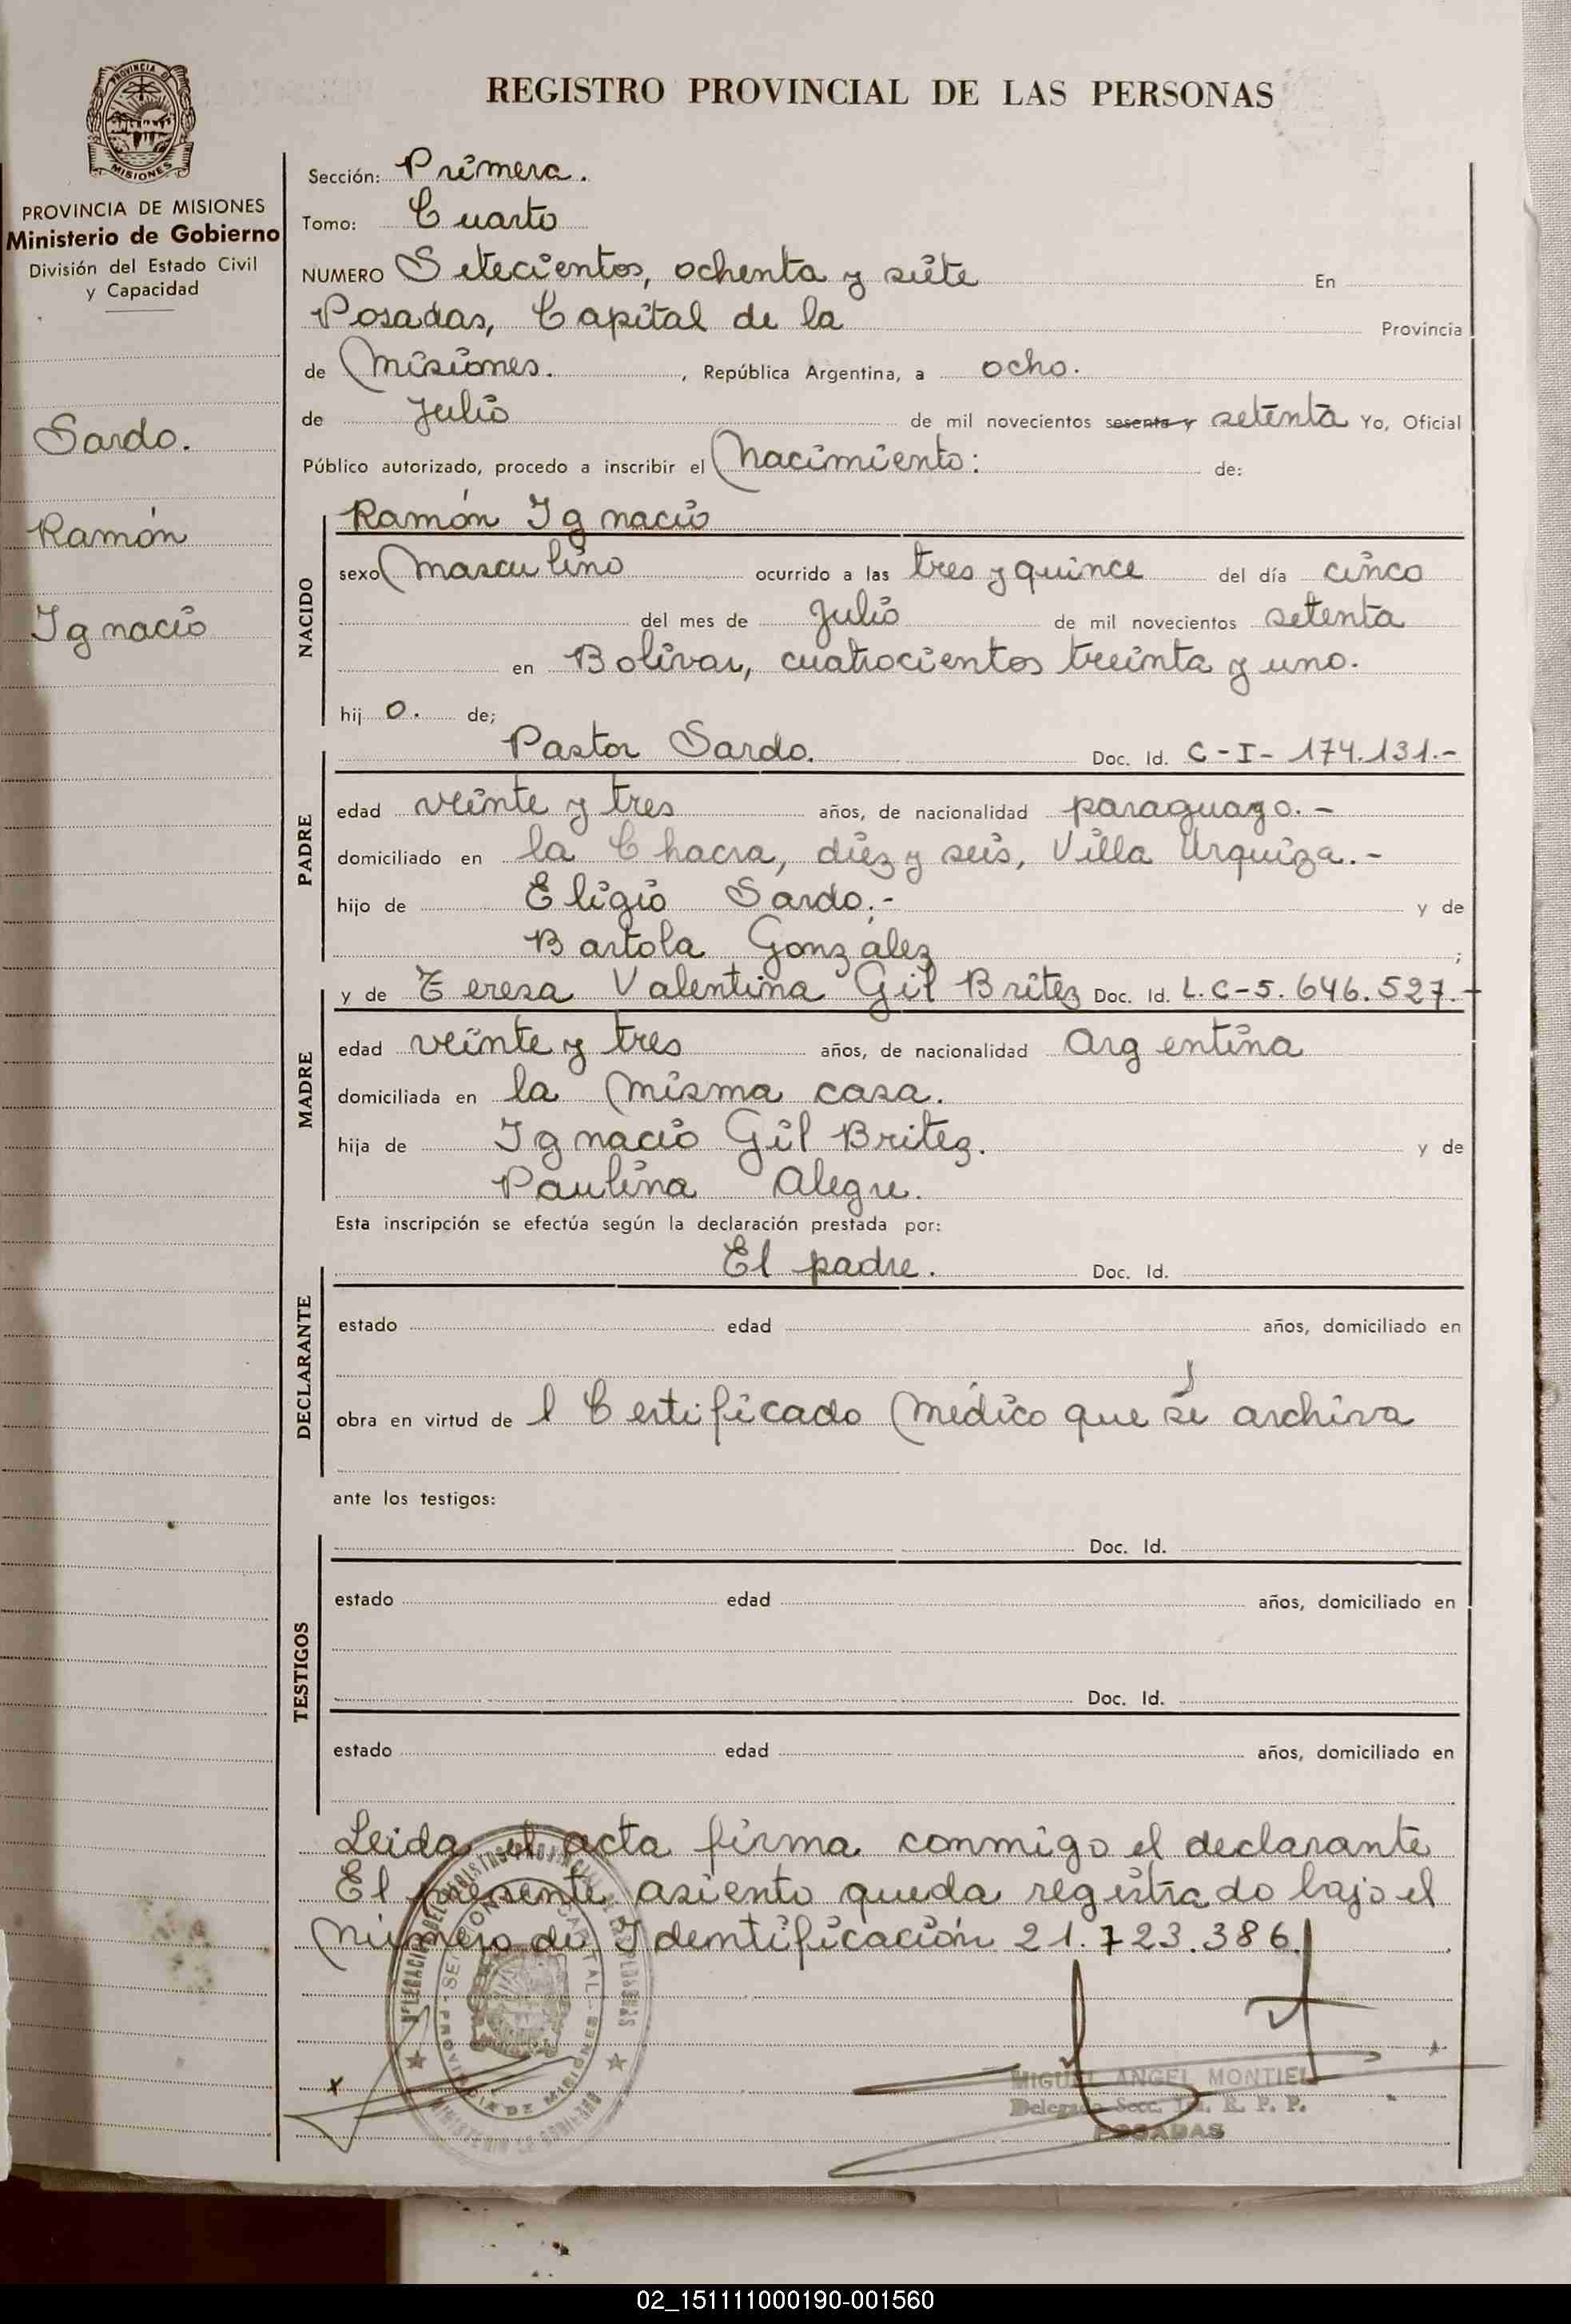 REGISTRO PROVINCIAL DE LAS PERSONAS
PROVINCIA DE
MISIONES
PROVINCIA DE MISIONES
Ministerio de Gobierno
División del Estado Civil
y Capacidad
Sardo.
Ramón
Ignacio
Sección: Primera.
Tomo: Cuarto
NUMERO Setecientos, ochenta y siete En
Posadas, Capital de la Provincia
de Misiones. , República Argentina, a ocho.
de Julio de mil novecientos sesenta y setenta Yo, Oficial
Público autorizado, procedo a inscribir el Nacimiento: de:
NACIDO
Ramón Ignacio
sexo Masculino ocurrido a las tres y quince del día cinco
del mes de Julio de mil novecientos setenta
en Bolívar, cuatrocientos treinta y uno.
hij o. de;
PADRE
Pastor Sardo. Doc. Id. C-I- 174.131.-
edad veinte y tres años, de nacionalidad paraguayo.-
domiciliado en la Chacra, diez y seis, Villa Urquiza.-
hijo de Eligio Sardo;- y de
Bartola González ;
MADRE
y de Teresa Valentina Gil Britez Doc. Id. L.C-5.646.527.-
edad veinte y tres años, de nacionalidad Argentina
domiciliada en la misma casa.
hija de Ignacio Gil Britez. y de
Paulina Alegre.
Esta inscripción se efectúa según la declaración prestada por:
DECLARANTE
El padre. Doc. Id.
estado edad años, domiciliado en
obra en virtud de l Certificado Médico que se archiva
ante los testigos:
TESTIGOS
Doc. Id.
estado edad años, domiciliado en
Doc. Id.
estado edad años, domiciliado en
Leida el acta firma conmigo el declarante
El presente asiento queda registrado bajo el
Número de Identificación 21.723.386.
MIGUEL ANGEL MONTIEL
Delegado Secc. R. P. P.
POSADAS
02_151111000190-001560